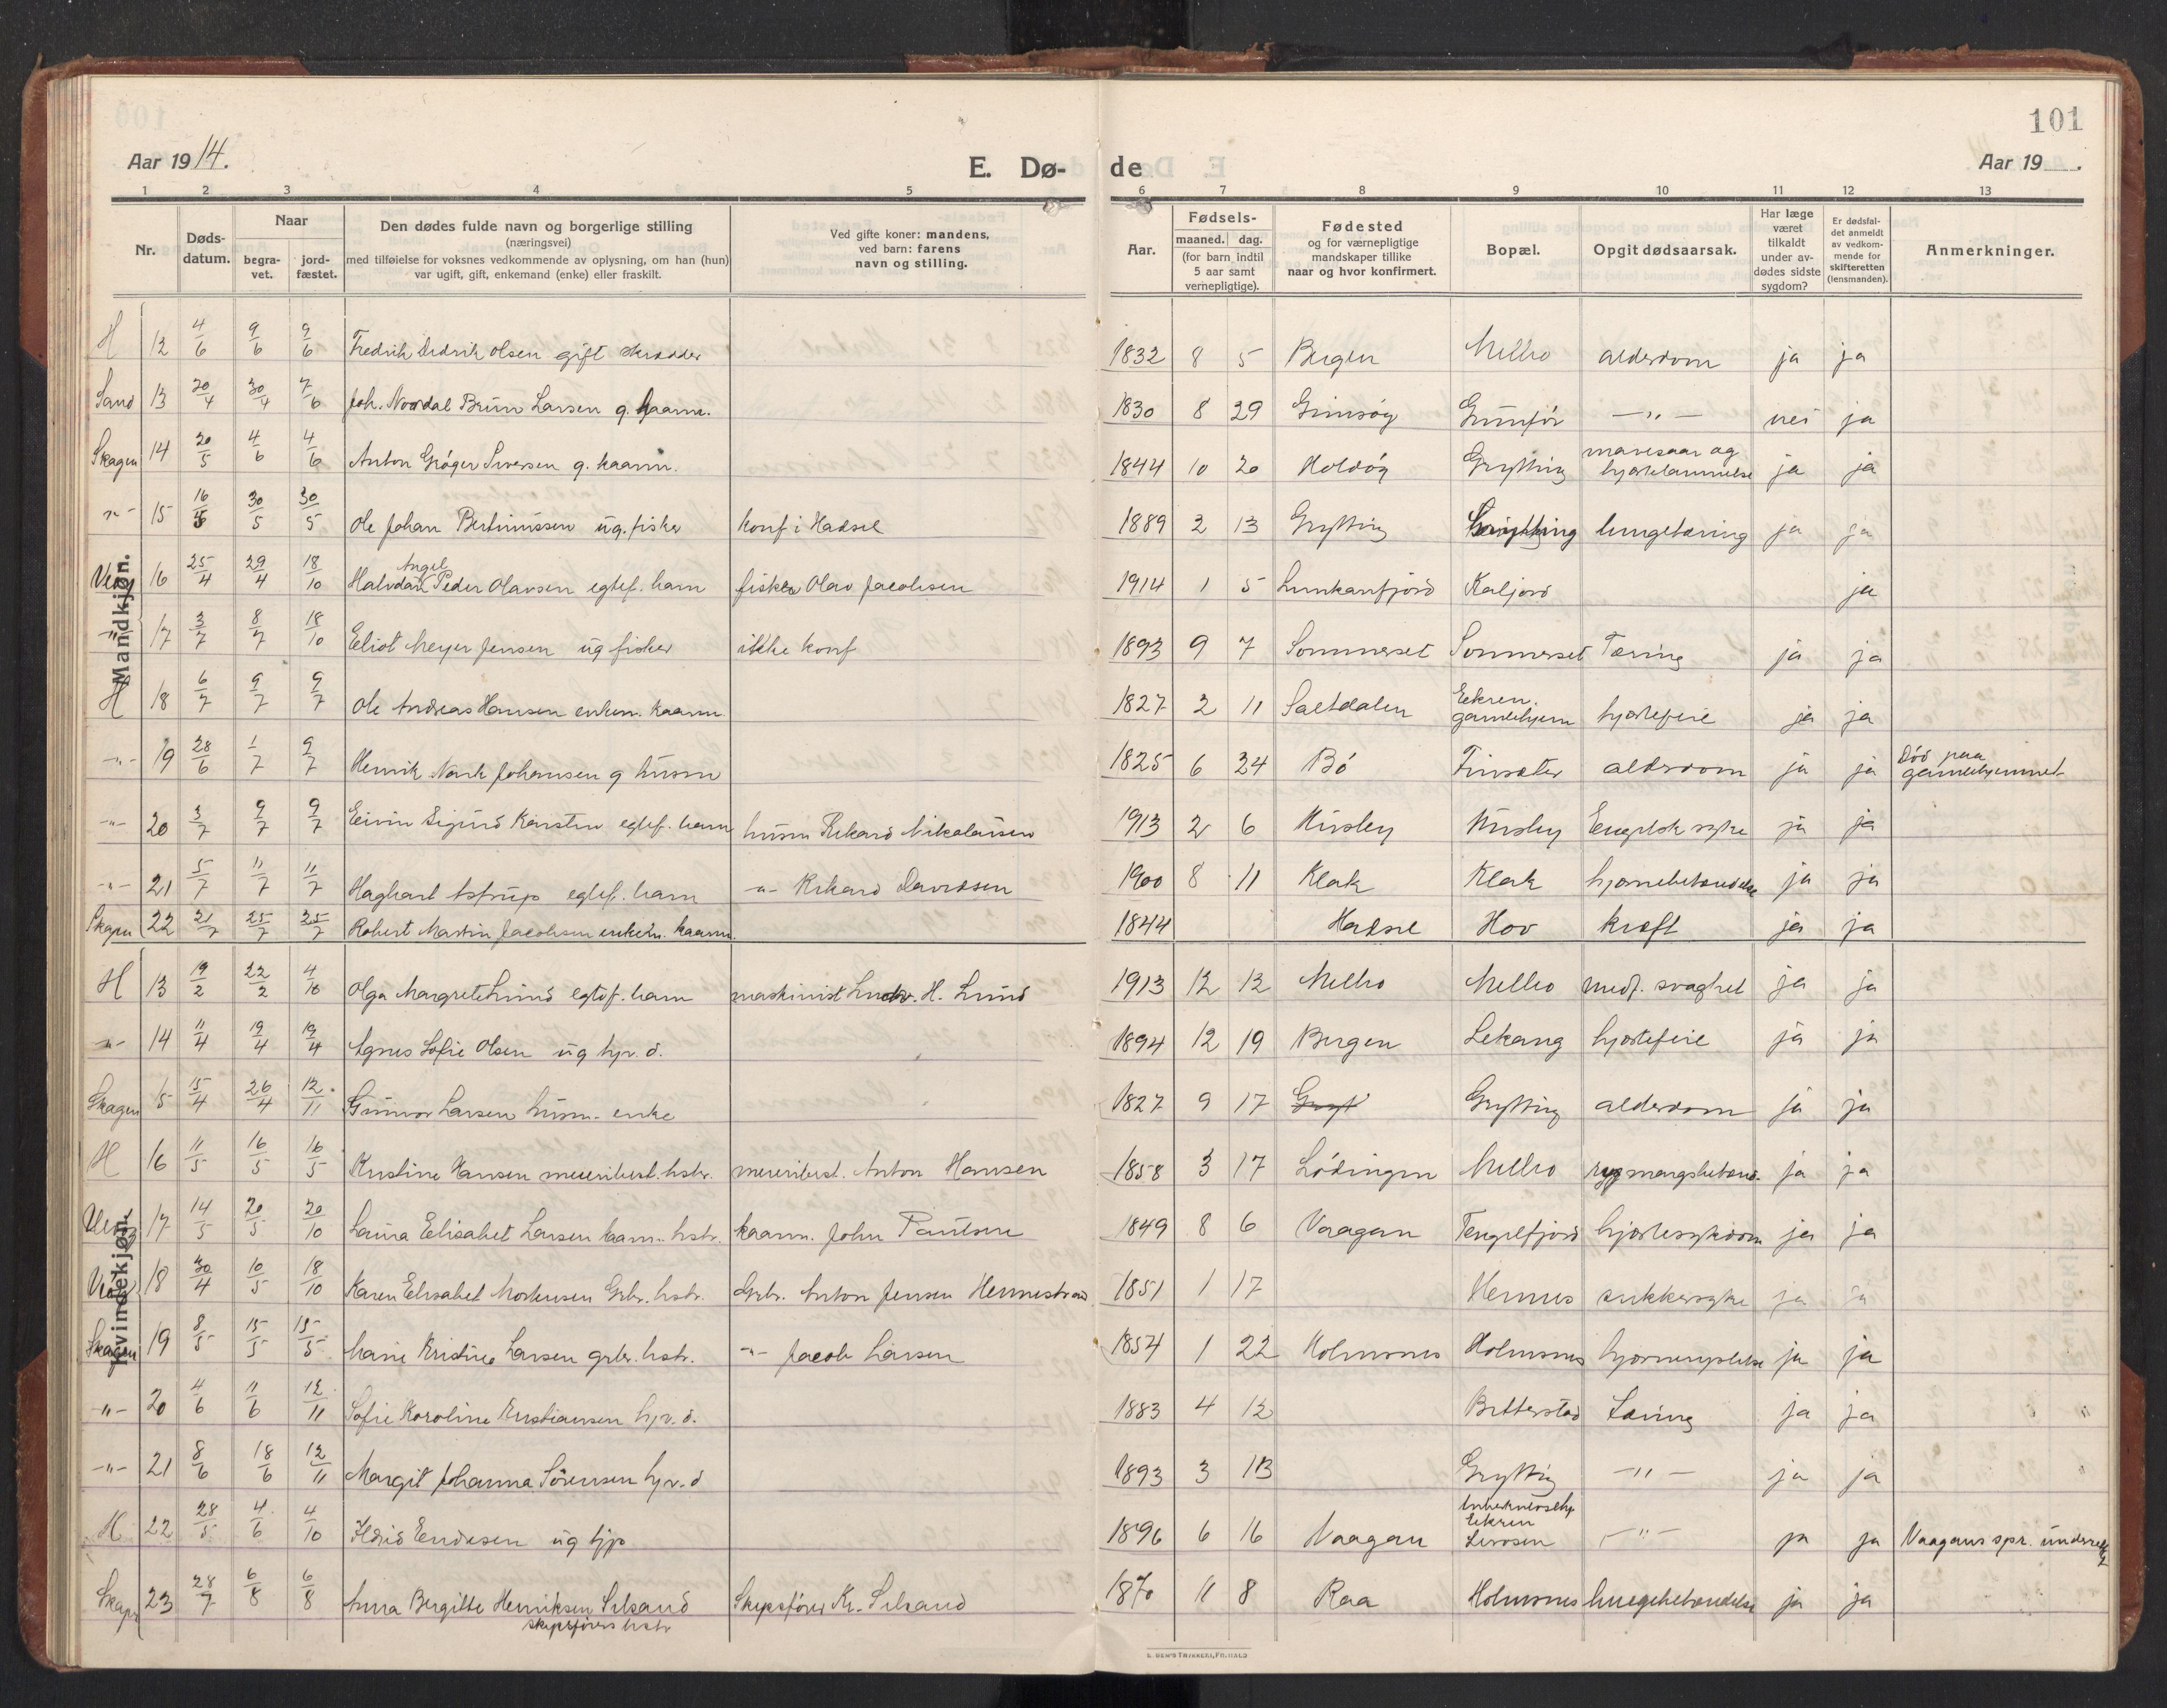 101
Aar 1914.
E. Dø- de
Aar 19 .
1 2 3 4 5 6 7 8 9 10 11 12 13
Nr.
Døds-datum.
Naar
begra-vet.
jord-fæstet.
Den dødes fulde navn og borgerlige stilling
(næringsvei)
med tilføielse for voksnes vedkommende av oplysning, om han (hun)
var ugift, gift, enkemand (enke) eller fraskilt.
Ved gifte koner: mandens,
ved barn: farens
navn og stilling.
Aar.
Fødsels-
maaned. dag.
(for barn indtil
5 aar samt
vernepligtige).
Fødested
og for værnepligtige
mandskaper tillike
naar og hvor konfirmert.
Bopæl.
Opgit dødsaarsak.
Har læge
været
tilkaldt
under av-
dødes sidste
sygdom?
Er dødsfal-
det anmeldt
av vedkom-
mende for
skifteretten
(lensmanden).
Anmerkninger.
Mandkjøn.
H 12 4/6 9/6 9/6 Fredrik Didrik Olsen gift skrædder 1832 8 5 Bergen Melbo alderdom ja ja
Sand 13 20/4 30/4 7/6 Joh. Nordal Brun Larsen g. kaarm. 1830 8 29 Gimsøy -"- nei ja
Skagen 14 20/5 4/6 4/6 Anton Grøger Siversen g. kaarm. 1844 10 20 Holdøy Grytting mavesaar og hjertelammelse ja ja
-"- 15 16/5 30/5 30/5 Ole Johan Bertinussen ug. fisker konf i Hadsel 1889 2 13 Grytting Grytting lungetæring ja ja
16 25/4 29/4 18/10 Halvdan Angel Peder Olavsen egtef. barn fisker Olav Jacobsen 1914 1 5 Lunkanfjord Kaljord ja
-"- 17 3/7 8/7 18/10 Eliot Meyer Jensen ug fisker ikke konf 1893 9 7 Sommerset Sommerset Tæring ja ja
H 18 6/7 9/7 9/7 Ole Andreas Hansen enkem. kaarm 1827 2 11 Saltdalen Eekren gamlehjem hjertefeil ja ja
-"- 19 28/6 1/7 9/7 Henrik Nark Johansen g husm 1825 6 24 Bö Finsæter alderdom ja ja Död paa gamlehjemmet
-"- 20 3/7 9/7 9/7 Eivin Sigurd Karsten egtef. barn husm Rikard Nikolaisen 1913 2 6 Husby Husby Engelsk syke ja ja
-"- 21 5/7 11/7 11/7 Hagbart Astrup egtef. barn -"- Rikard Davidsen 1900 8 11 Klak Klak hjernebetændelse ja ja
Skagen 22 21/7 25/7 25/7 Robert Martin Jacobsen enkem. kaarm. 1844 Hadsel Hov kræft ja ja
Kvindekjøn.
H 13 19/2 22/2 4/10 Olga Margrete Lund egtef. barn maskinist Ludv. H. Lund 1913 12 12 Melbo Melbo medf. svaghet ja ja
-"- 14 11/4 19/4 19/4 Agnes Sofie Olsen ug hjv. d. 1894 12 19 Bergen Lekang hjertefeil ja ja
Skagen 15 15/4 26/4 12/11 Gunvor Larsen husm. enke 1827 9 17 Gryt Grytting alderdom ja ja
H 16 11/5 16/5 16/5 Kristine Hansen meieribest. hstr. meieribest. Anton Hansen 1858 3 17 Lödingen Melbo rygmargsbetænd. ja ja
17 14/5 20/5 20/10 Laura Elisabet Larsen kaarm. hstr. kaarm. John Paulsen 1849 8 6 Vaagan Tengelfjord hjertesykdom ja ja
18 30/4 10/5 18/10 Karen Elisabet Mortensen Grbr. hstr. Grbr. Anton Jensen Hennestrand 1851 1 17 Hennes sukkersyke ja ja
Skagen 19 8/5 15/5 15/5 Marie Kristine Larsen grbr. hstr. -"- Jacob Larsen 1854 1 22 Holmsnes Holmsnes ja ja
-"- 20 4/6 11/6 12/11 Sofie Karoline Kristiansen hjv. d. 1883 4 12 Bitterstad Tæring ja ja
-"- 21 8/6 18/6 12/11 Margit Johanna Sörensen hjv. d 1893 3 13 Grytting -"- ja ja
H 22 28/5 4/6 4/10 Eendesen ug tjp 1896 6 16 Vaagan Eekren -"- ja ja Vaagans spr. underrettet
Skagen 23 28/7 6/8 6/8 Anna Bergitte Henriksen Silsand skipsförers hstr Skipsförer Kr. Silsand 1870 11 8 Raa Holmsnes lungebetændelse ja ja